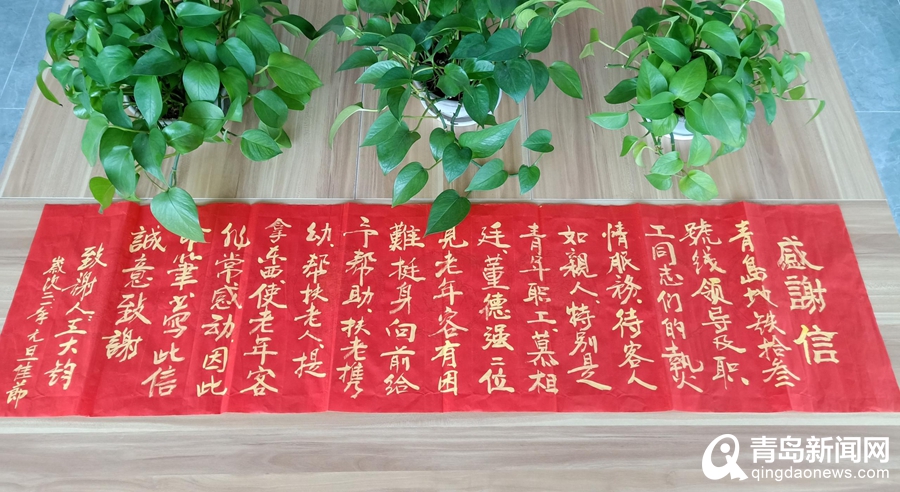 感謝信
青島地铁拾叁
號线领导及职
工同志们的熱
情服務、待客人
如親人、特别是
青年职工、慕相
廷、董德强三位
見老年客有困
難挺身向前给
予帮助、扶老携
幼、帮扶老人、提
拿东西、使老年客
非常感动、因此
筆书写此信
誠意致謝
致謝人:王大钧
歲次二年元旦佳節
青岛新闻网
qingdaonews.com